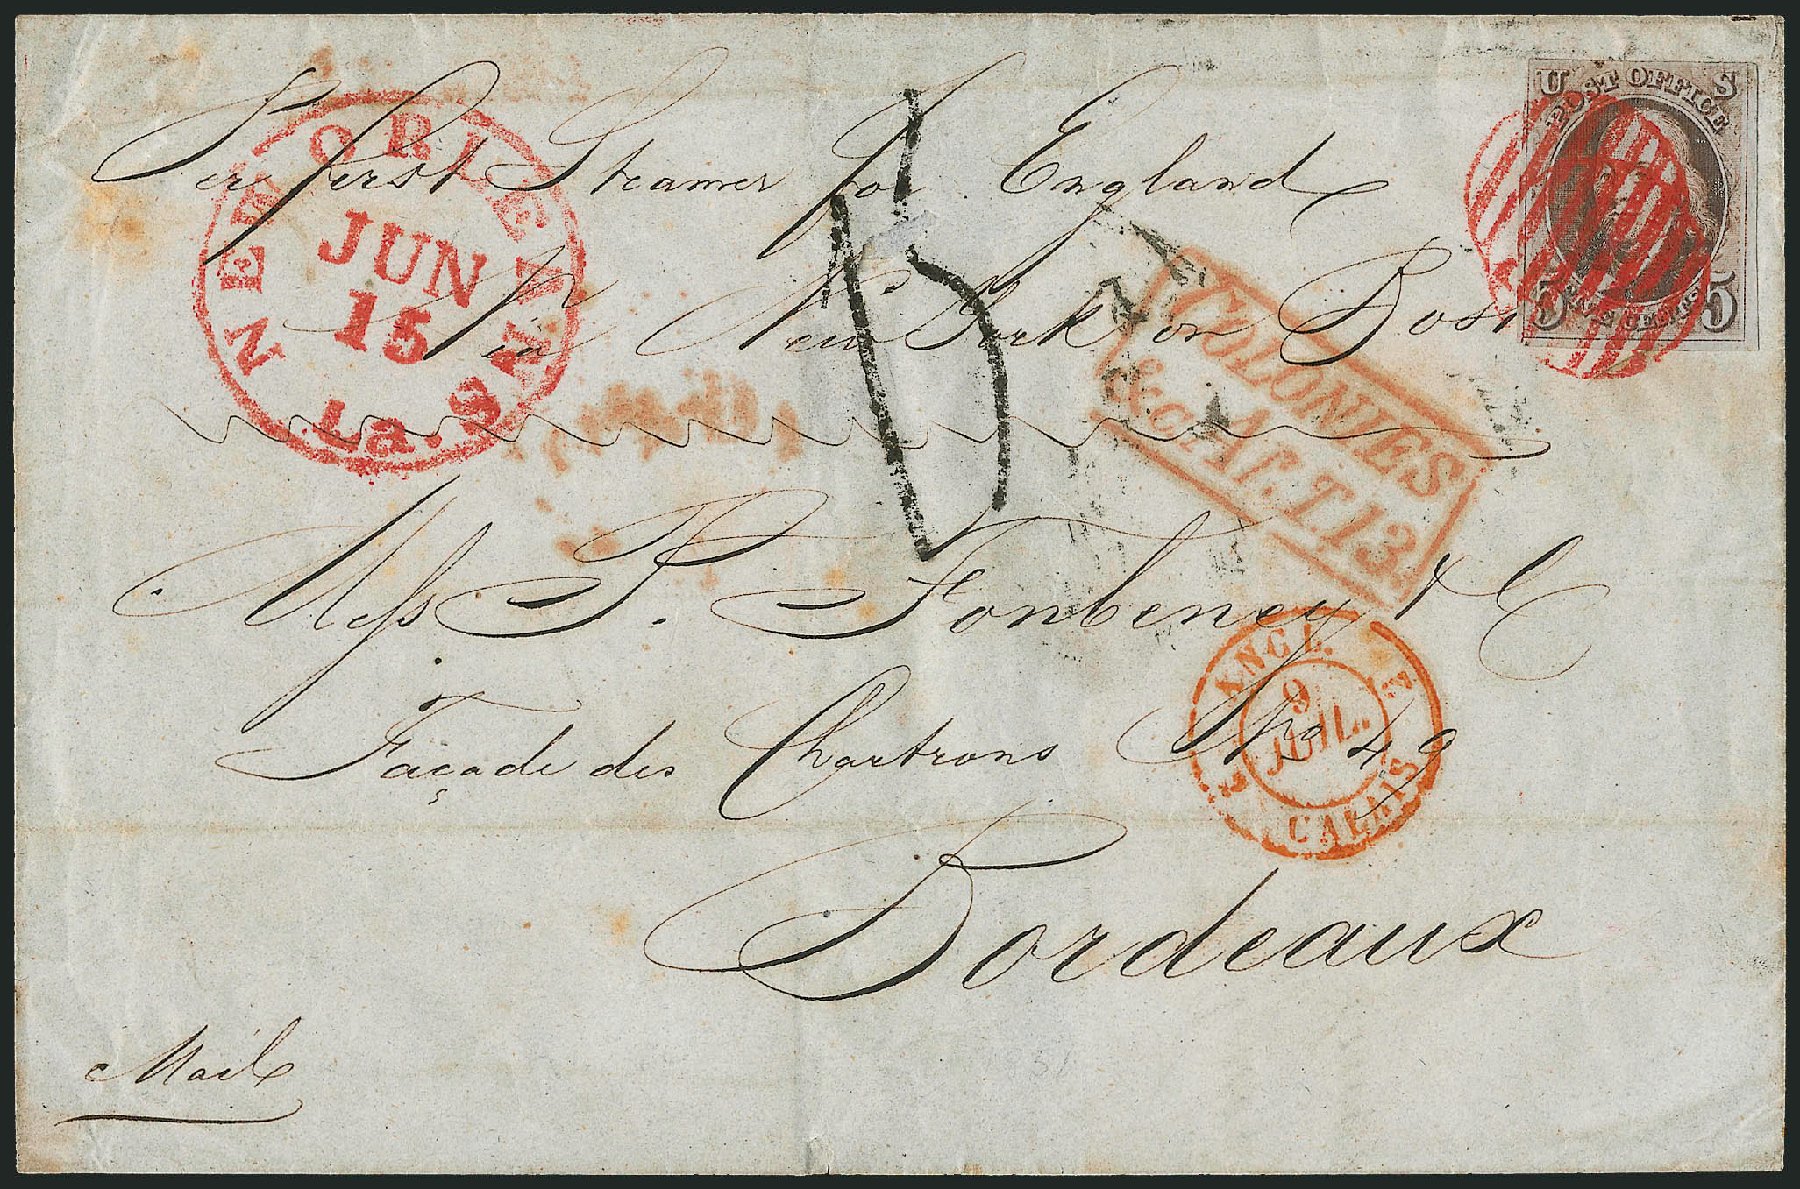 Per first Steamer for England
via New York or Bost
NEW ORLEANS
JUN
15
La.
U S
POST OFFICE
5 FIVE CENTS 5
COLONIES
&c. ART. 13.
Mess P. Fonbeney & C
Façade des Chartrons No 49
Bordeaux
ANGL.
9
JUIL.
CALAIS
Mail